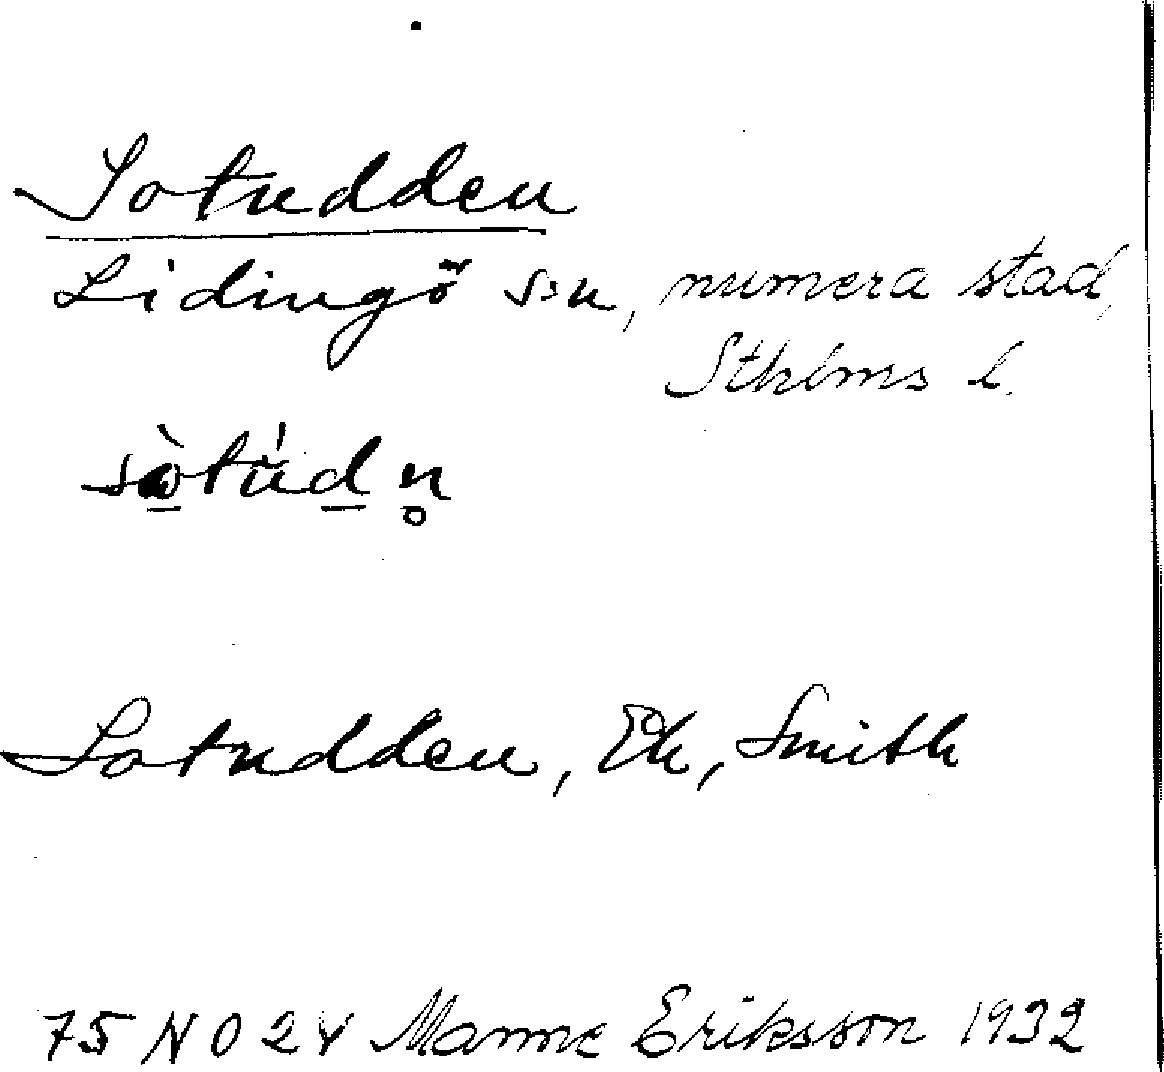 Sotudden
Lidingö sn, numera stad,
Sthlms l.
sòtúdn̥
Sotudden, Ek, Smith
75 N O 2 Y Manne Eriksson 1932